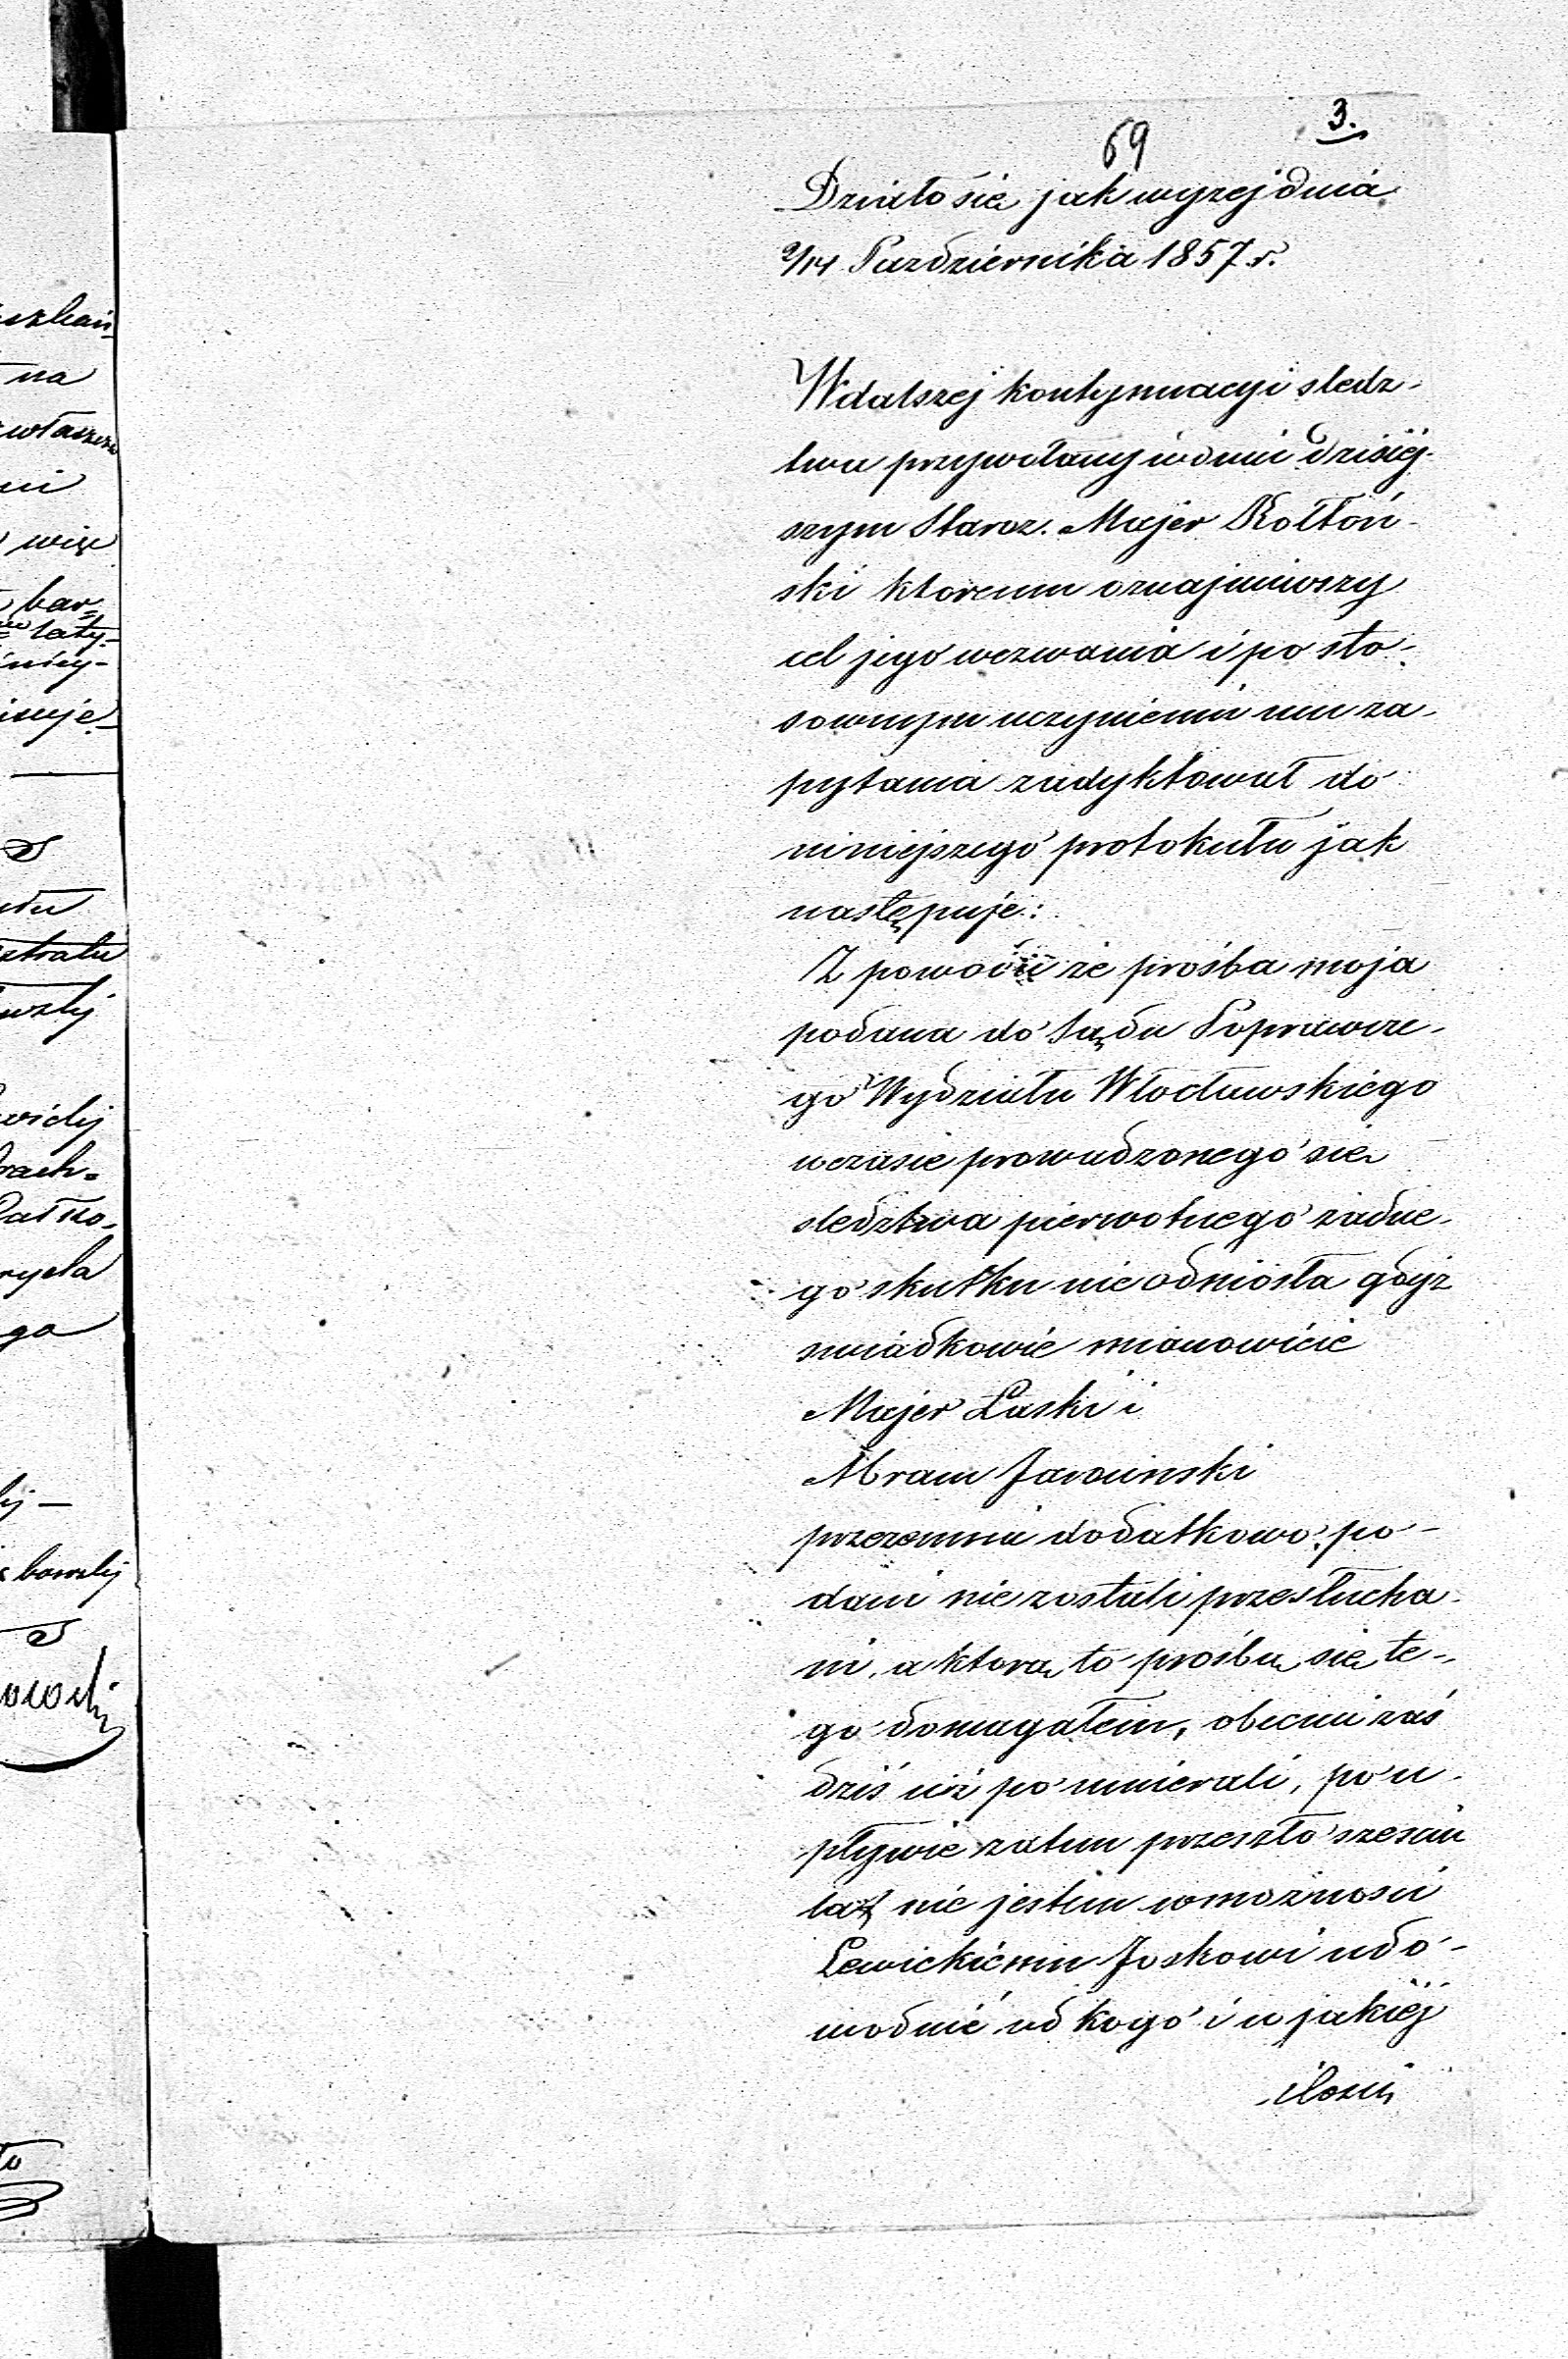 3.
69
Działo się jak wyżej dnia
2/14 Października 1857 r.
W dalszej kontynuacyi sledz-
twa przywołany w dniu dzisiej-
szym Staroz. Majer Kołtoń-
ski ktoremu oznajmiwszy
cel jego wezwania i po sto-
sownym uczynieniu mu za-
pytania zadyktował do
niniejszego protokułu jak
następuje:
Z powodu że prośba moja
podana do Sądu Poprawcze-
go Wydziału Włocławskiego
w czasie prowadzonego się
sledztwa pierwotnego żadne-
go skutku nie odniosła gdyż
swiadkowie mianowicie
Majer Laski i
Abram Jarocinski
przezemnie dodatkowo po-
dani nie zostali przesłucha-
ni, a którą to prośbą się te-
go domagałem, obecnie zaś
dziś już poumierali, po u-
pływie zatem przeszło sześciu
lat nie jestem w możności
Lewickiemu Joskowi udo-
wodnić od kogo i w jakiej
ilości
szkań
na
zwłaszcza
ni
więc
bar-
laty-
isuje
widej
rach-
ryela
go